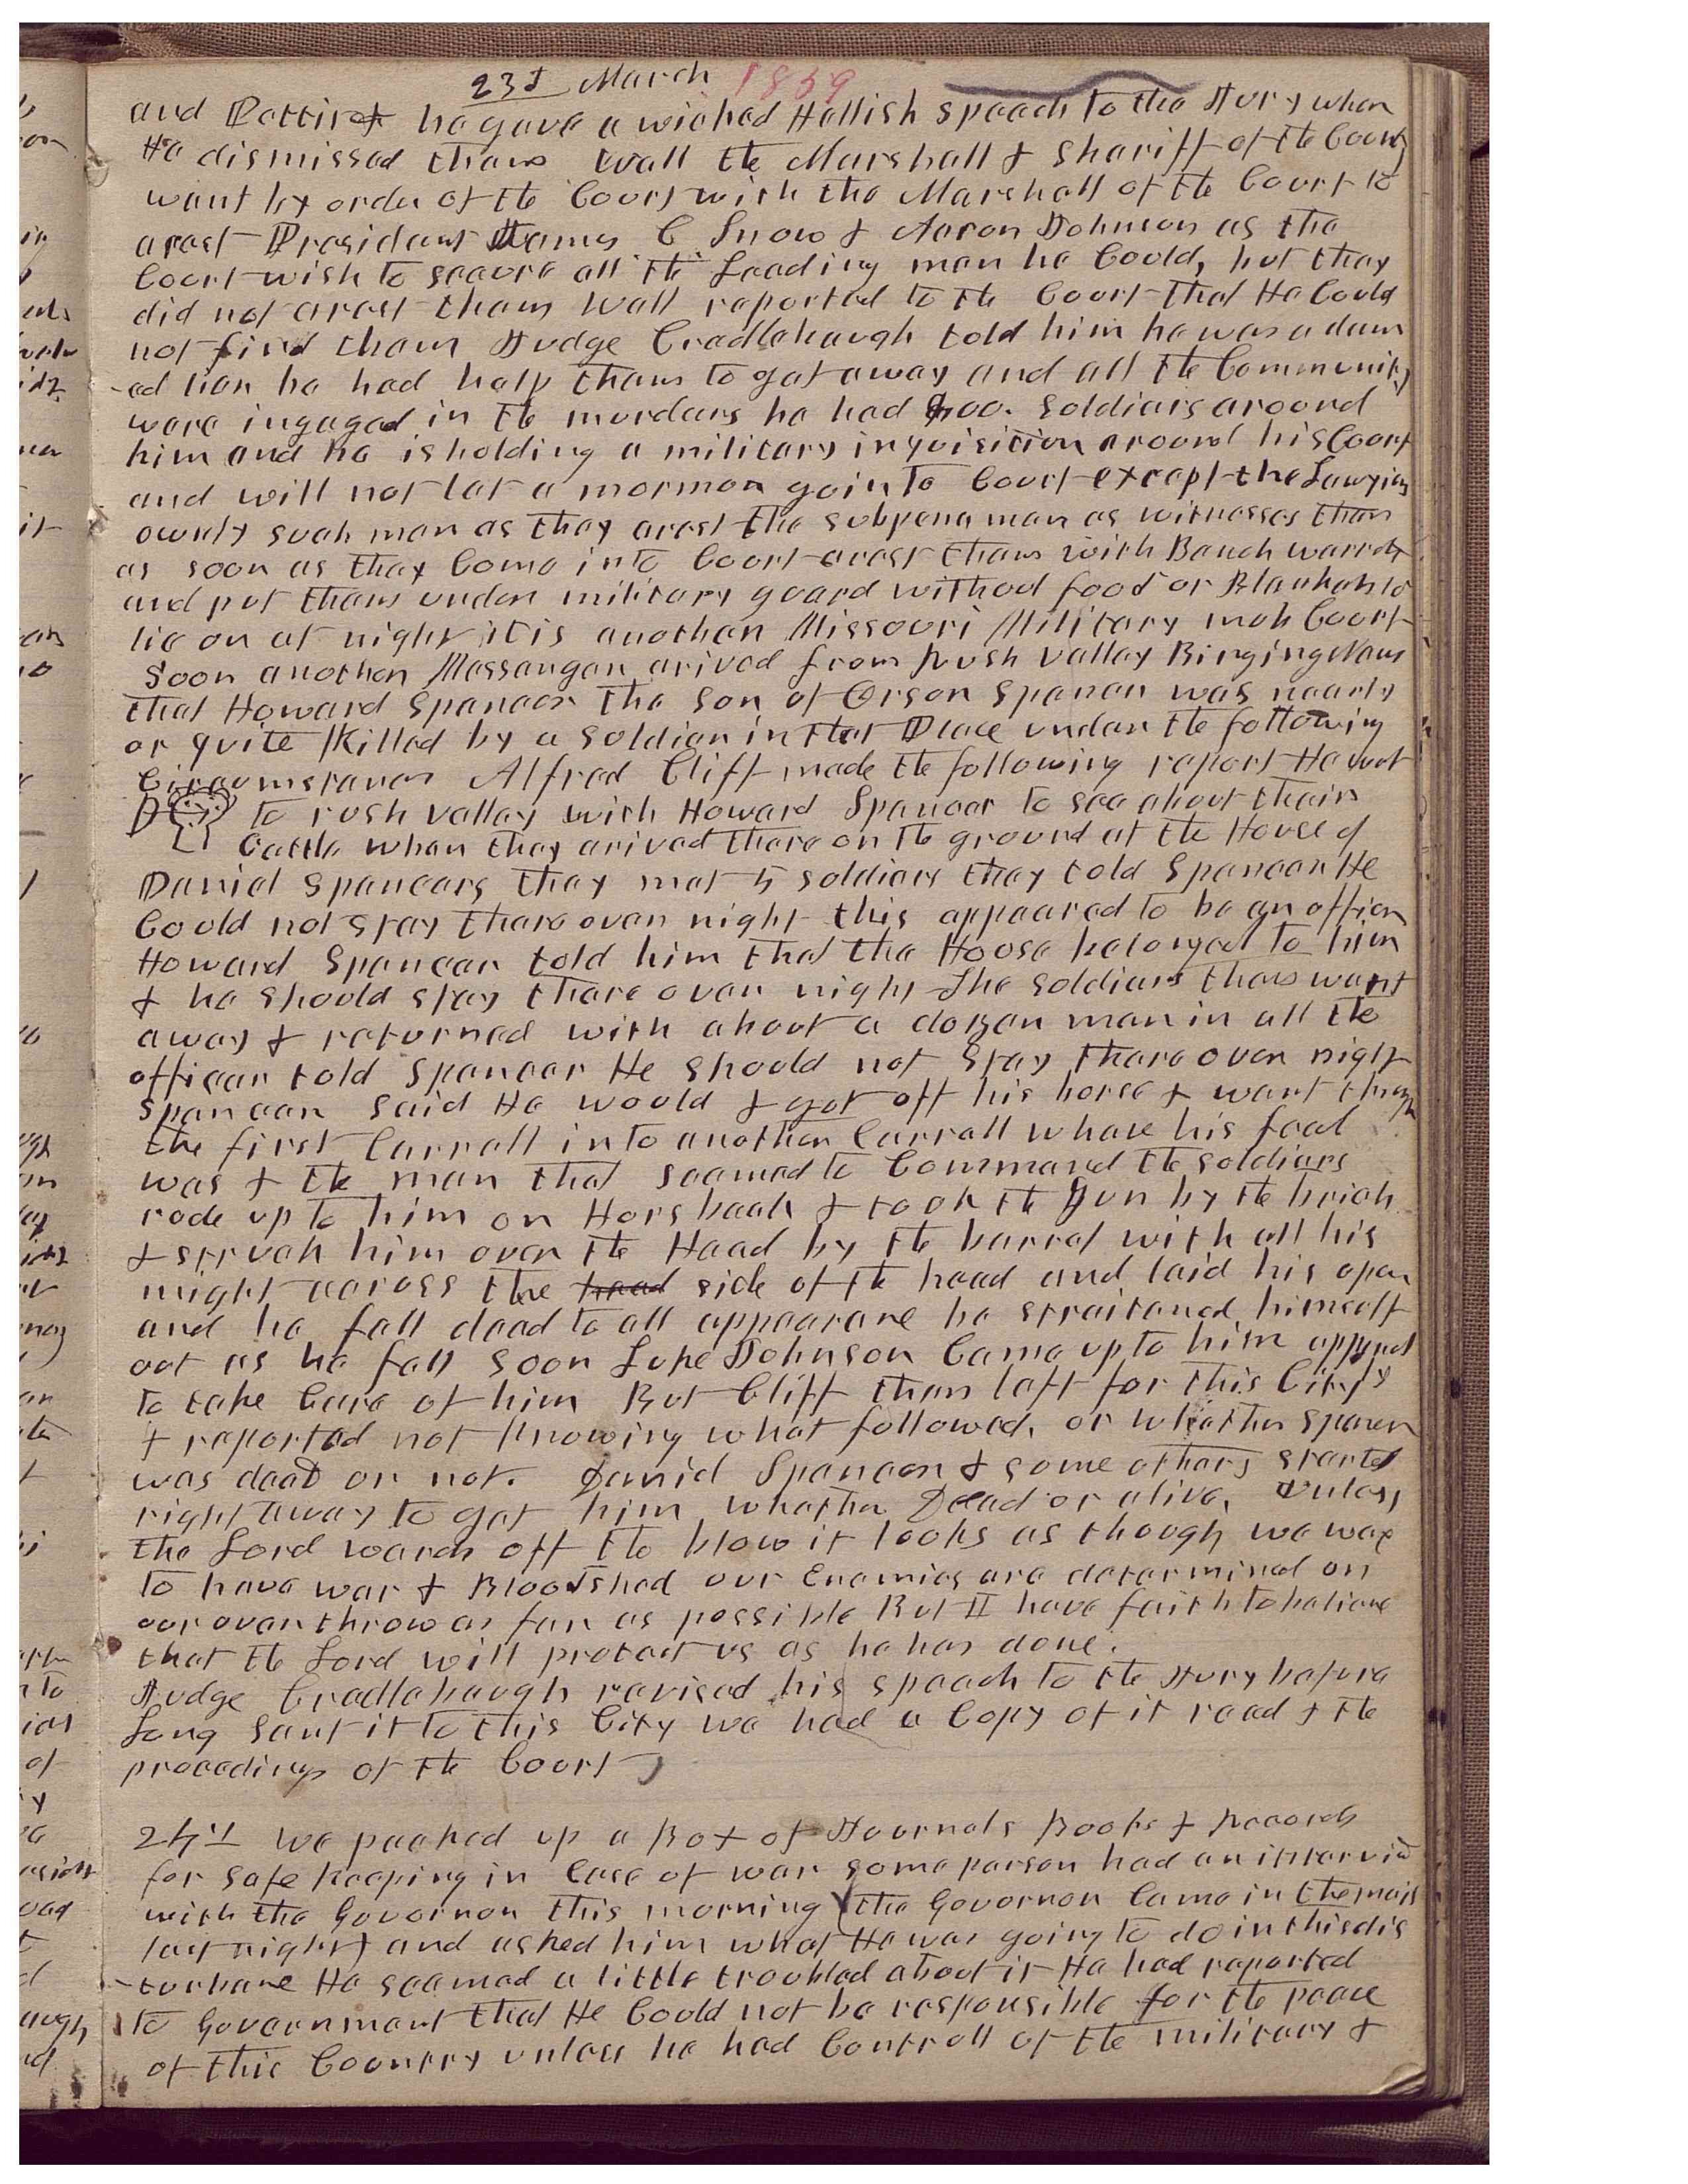 23d March 1859
and Pettit he gave a wicked Hellish speech to the Jury when
He dismissed them Wall the Marshall & Shariff of the County
went by order of the Court with the Marshall of the Court to
arest President James C Snow & Aaron Johnson as the
Court wish to secure all the Leading men he Could, but they
did not arest them Wall reported to the Court that He Could
not find them Judge Cradlebaugh told him he was a dam
-ed liar he had help them to get away and all the Community
were ingaged in the murders he had 900. Soldiers around
him and he is holding a military inquisition around his Court
and will not let a mormon go in to Court except the Lawyiers
ownly such men as they arest the subpena men as witnesses then
as soon as they Come into Court arest them with Bench warrets
and put them under military guard without food or Blankets to
lie on at night it is another Missouri Military mob Court
Soon another Messanger arived from Rush valley Bringing News
that Howard Spencer the son of Orson Spencer was nearly
or quite Killed by a Soldier in that Place under the following
Circumstances Alfred Cliff made the following report He went
to rush valley with Howard Spencer to see about their
Cattle when they arived there on the ground at the House of
Daniel Spencers they met 5 soldiers they told Spencer He
Could not stay there over night this appeared to be an officer
Howard Spencer told him that the House belonged to him
& he should stay there over night The soldiers then went
away & returned with about a dozen men in all the
officer told Spencer He should not stay there over night
Spencer said He would & got off his horse & went through
the first Carrall into another Carrall whare his feed
was & the man that seemed to Command the soldiers
rode up to him on Hors back & took the gun by the brich
& struck him over the Head by the barrel with all his
might across the head side of the head and laid his open
and he fell dead to all appearane he straitened himself
out as he fell soon Luke Johnson Came up to him
to take Care of him But Cliff then left for this City
& reported not knowing what followed, or whether Spencer
was dead or not. Daniel Spencer & some others started
right away to get him whether Dead or alive. Unless
the Lord wards off the blow it looks as though we ware
to have war & Bloodshed our Enemies are determined on
our overthrow as far as possible But I have faith to believe
that the Lord will protect us as he has done.
Judge Cradlebaugh revised his speech to the Jury before
Long sent it to this City we had a Copy of it read & the
proceedings of the Court
24th We packed up a Box of Journals Books & Records
for safe keeping in Case of war some person had an interview
with the Governor this morning (the Governor Came in the mail
last night) and asked him what He was going to do in this dis
-turbane He seemed a little troubled about it He had reported
to Government that He Could not be responsible for the peace
of this Country unless he had Controll of the military &